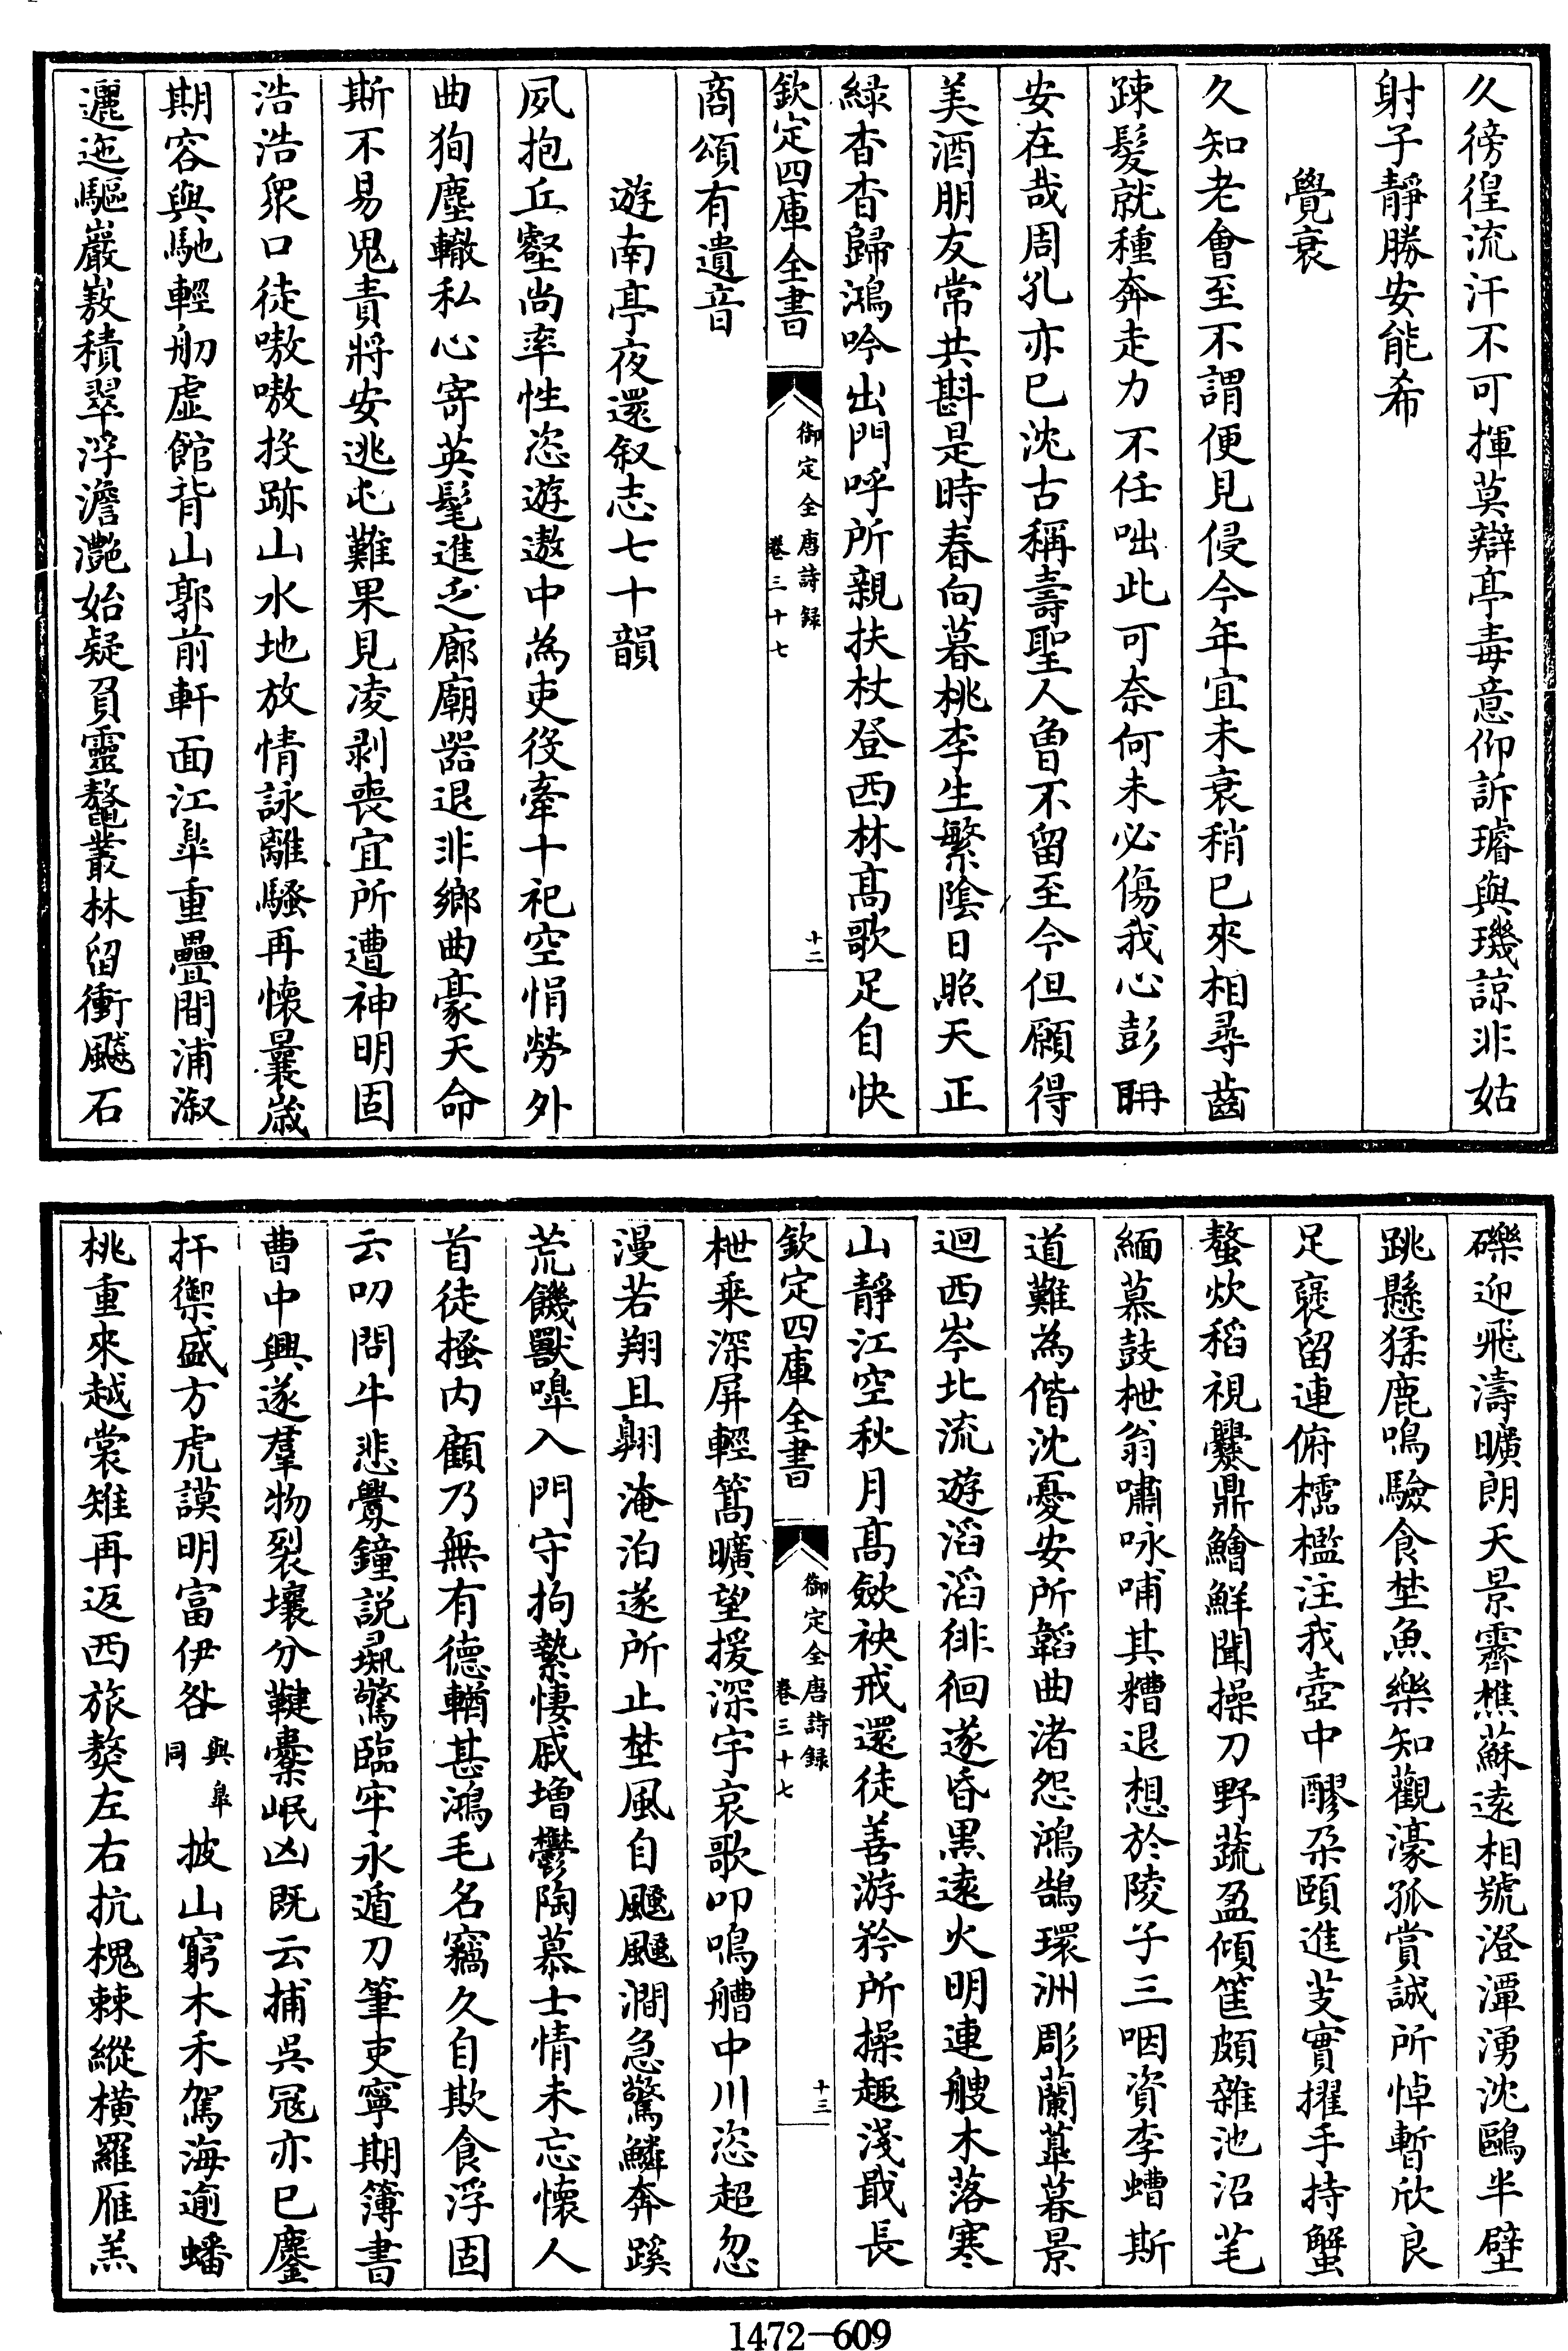 久徬徨流汗不可揮莫辯亭毒意仰訴璿與璣諒非姑
射子靜勝安能希
覺衰
久知老會至不謂便見侵今年宜未衰稍已來相尋齒
踈髮就種奔走力不任咄此可奈何未必傷我心彭聃
安在哉周孔亦已沈古稱壽聖人曾不留至今但願得
美酒朋友常共斟是時春向暮桃李生繁陰日照天正
緑杳杳歸鴻吟出門呼所親扶杖登西林髙歌足自快
欽定四庫全書
御定全唐詩録
卷三十七
十二
商頌有遺音
遊南亭夜還叙志七十韻
夙抱丘壑尚率性恣遊遨中為吏役牽十祀空悁勞外
曲狥塵轍私心寄英髦進乏廊廟器退非鄉曲豪天命
斯不易鬼責將安逃屯難果見凌剥喪宜所遭神明固
浩浩衆口徒嗷嗷投跡山水地放情詠離騷再懷曩嵗
期容與馳輕舠虛館背山郭前軒面江臯重疊間浦溆
邐迤驅巖嶅積翠浮澹灧始疑負靈鼇叢林留衝飇石
礫迎飛濤曠朗天景霽樵蘇逺相號澄潭湧沈鷗半壁
跳懸猱鹿鳴驗食埜魚樂知觀濠孤賞誠所悼暫欣良
足襃留連俯櫺檻注我壺中醪朶頤進芰實擢手持蟹
螯炊稻視爨鼎鱠鮮聞操刀野蔬盈傾筐頗雜池沼芼
緬慕鼓枻翁嘯咏哺其糟退想於陵子三咽資李螬斯
道難為偕沈憂安所韜曲渚怨鴻鵠環洲彫蘭䕫暮景
迴西岑北流遊滔滔徘徊遂昏黒逺火明連艘木落寒
山靜江空秋月髙斂袂戒還徒善游矜所操趣淺戢長
欽定四庫全書
御定全唐詩録
卷三十七
十三
枻乘深屏輕篙曠望援深宇哀歌叩鳴艚中川恣超忽
漫若翔且翺淹泊遂所止埜風自䬙䬙澗急驚鱗奔蹊
荒饑獸嘷入門守拘縶悽戚増鬱陶慕士情未忘懷人
首徒搔内顧乃無有德輶甚鴻毛名竊久自欺食浮固
云叨問牛悲釁鐘説彘驚臨牢永遁刀筆吏寧期簿書
曹中興遂羣物裂壤分鞬櫜岷凶既云捕吳寇亦已鏖
扞禦盛方虎謨明富伊咎與臯同披山窮木禾駕海逾蟠
桃重來越裳雉再返西旅獒左右抗槐棘縱横羅雁羔
1472—609